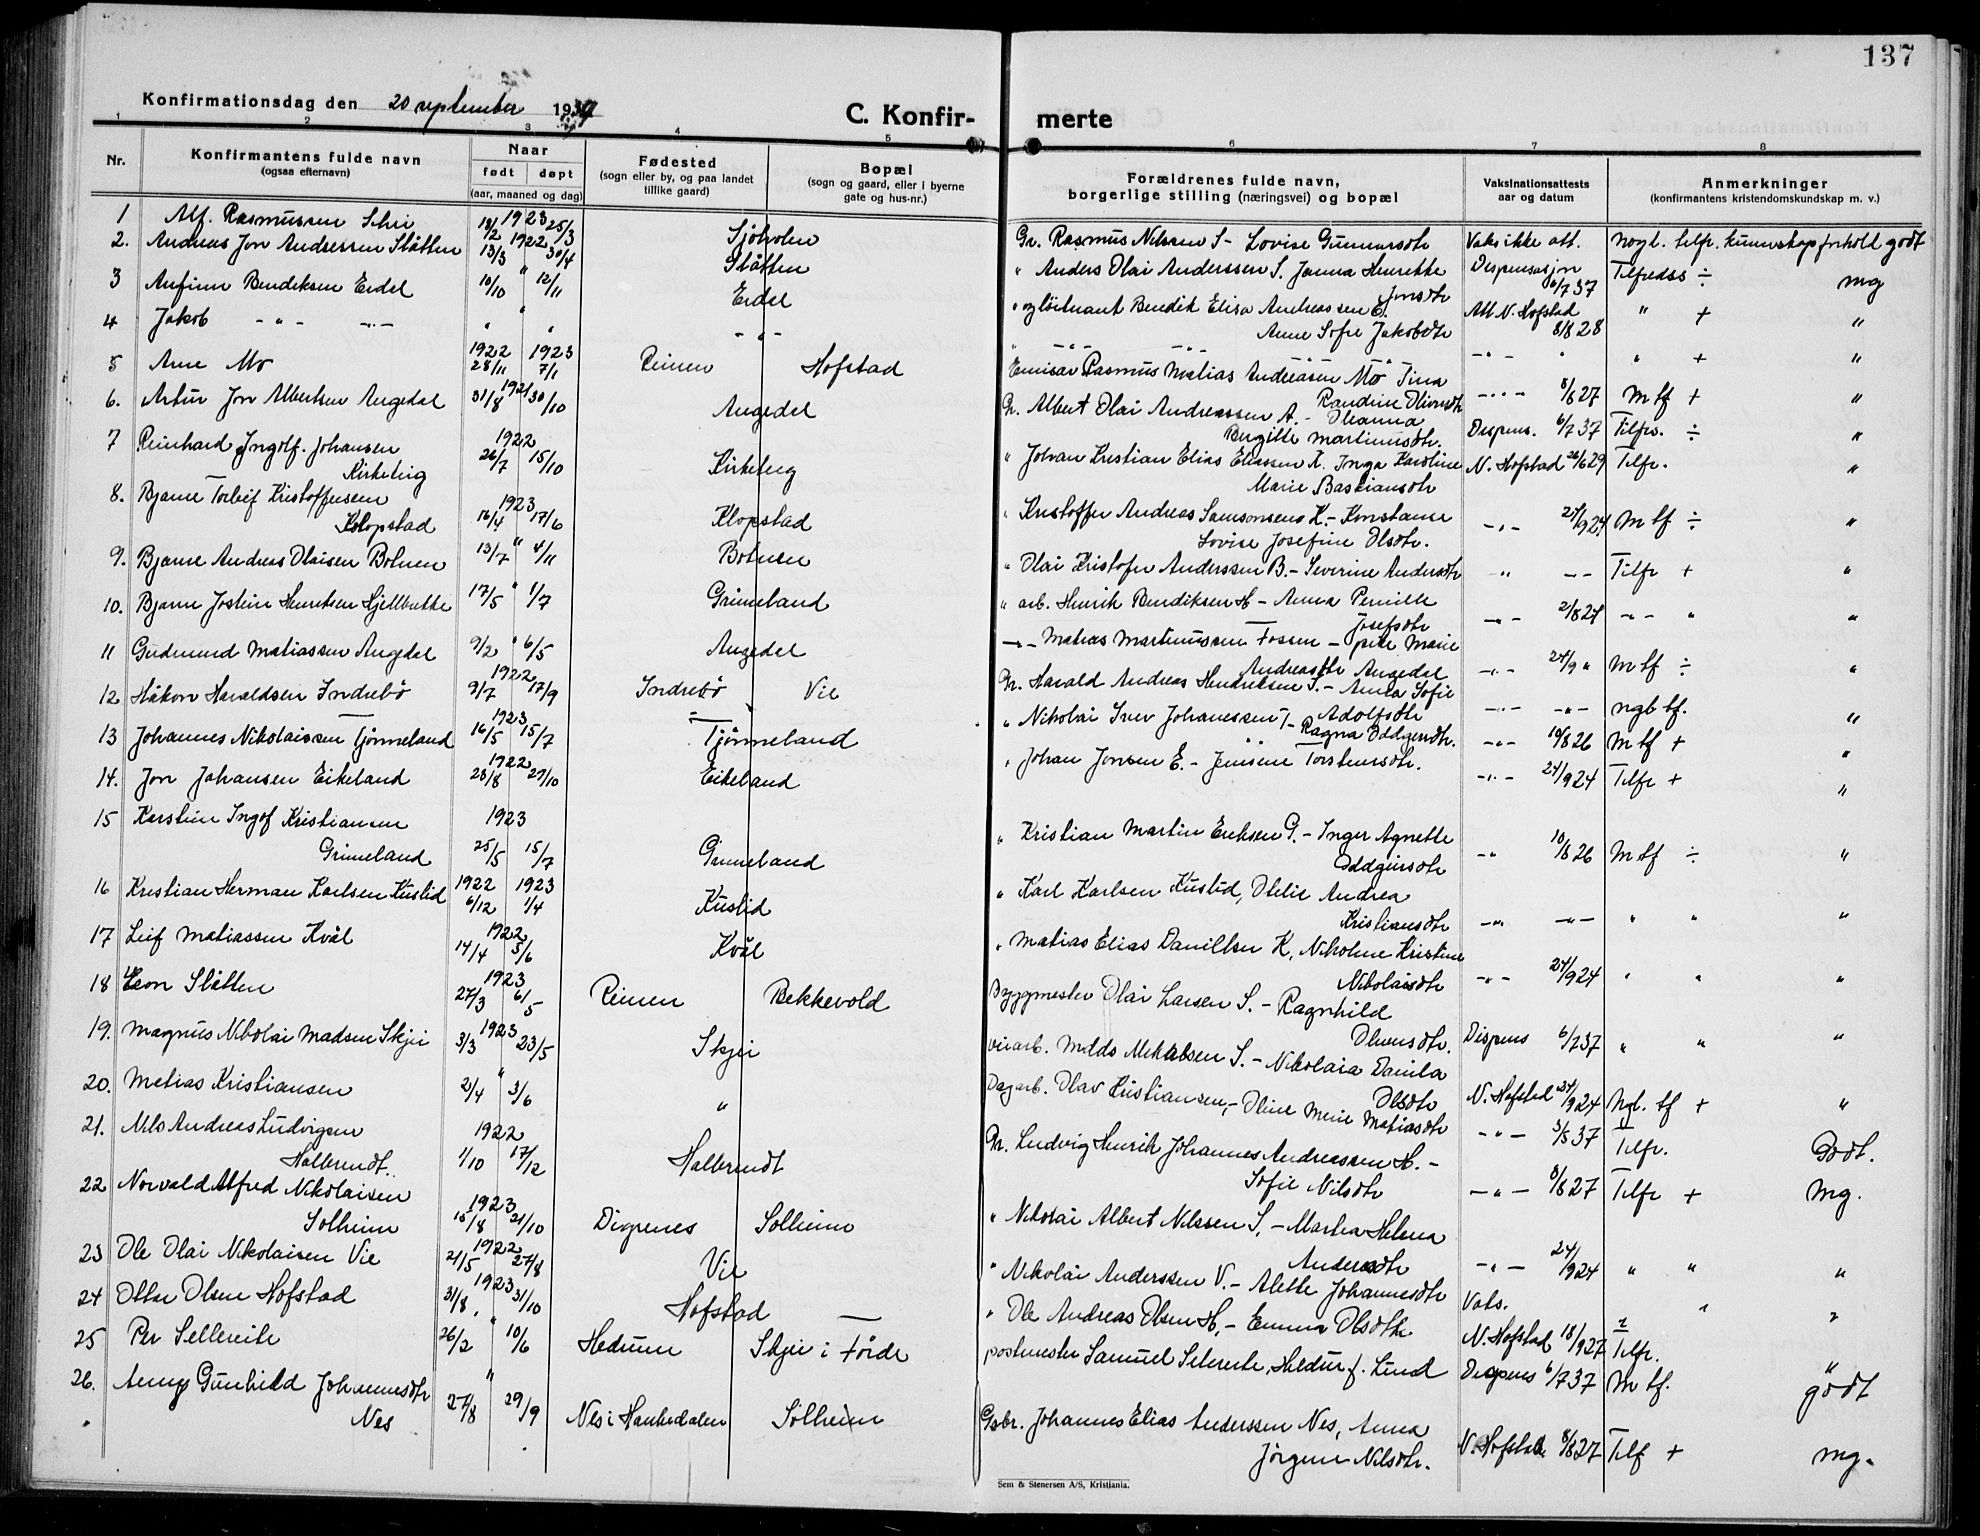 137
Konfirmationsdag den 20 september 1937
C. Konfir- merte
1 2 3 4 5 6 7 8
Nr.
Konfirmantens fulde navn
(ogsaa efternavn)
Naar
født døpt
(aar, maaned og dag)
Fødested
(sogn eller by, og paa landet
tillike gaard)
Bopæl
(sogn og gaard, eller i byerne
gate og hus-nr.)
Forældrenes fulde navn,
borgerlige stilling (næringsvei) og bopæl
Vaksinationsattests
aar og datum
Anmerkninger
(konfirmantens kristendomskundskap m. v.)
1 Alf. Rasmussen 18/2 1923 25/3 Gr. Rasmus Nilssen S- Lovise Gunnarsdtr Vaks ikke att. nogl. tilfr. kunnskap forhold godt
2. Andreas Jon Anderssen Slåtten 13/3 1922 30/4 Slåtten " Anders Olai Anderssen S. Janna Henrette Jonsdtr Dispensasjon 6/7 37 Tilfredss ÷ mg
3 Anfinn Bendiksen Eidel 10/10 " 12/11 Eidel " og løitnant Bendik Elisa Andreassen E. Anne Sofie Jakobsdtr Att N. Hofstad 8/8 28 " + "
4 Jakob -"- -"- " " " -"- -"- " " + "
5 Arne Mo 1922 28/11 1923 7/1 Reinen Hofstad Emisær Rasmus Matias Andreasen Mo Tina Randine Olionsdtr -"- 8/8 27 M tf + "
6. Artur Jon Albertsen Angedal 31/8 1921 30/10 Angedal Gr. Albert Olai Andreassen A. - Oleanna Birgitte Martinusdtr. Dispens. 6/7 37 Tilfr. ÷ "
7 Reinhard Ingolf. Johansen
Kirketeig 1922 26/7 15/10 Kirketeig " Johan Kristian Elias Eliassen K. Inga Karoline
Marie Bastiansdtr N. Hofstad 26/6 29 Tilfr. "
8. Bjarne Torleif Kristoffersen
Klopstad 1923 16/4 17/6 Klopstad " Kristoffer Andreas Samsonsens K.- Konstanse
Lovise Josefine Olsdtr. -"- 24/9 24 M tf ÷ "
9. Bjarne Andreas Olaisen Botnen 13/7 " 4/11 Botnen " Olai Kristofer Anderssen B.- Severine Andersdtr " -- Tilfr + "
10. Bjarne Jostein Henriksen Hjellbrekke 17/5 " 1/7 Grimeland " arb. Henrik Bendiksen H - Anna Pernille Josefsdtr -"- 2/8 27 -"- " "
11 Gudmund Matiassen Angedal 9/2 " 6/5 Angedal -"- Matias Martinussen Fossen - pike Marie Andreasdtr Angedal -"- 24/9 " M tf ÷ "
12 Håkon Haraldsen Indrebø 1922 9/7 17/9 Indrebø Vie Gr. Harald Andreas Hendriksen I. - Anna Sofie Adolfsdtr -"- -"- ngl tf. "
13 Johannes Nikolaissen Tjønneland 1923 16/5 15/7 Tjønneland " Nikolai Iver Johanessen T- Ragna Oddgeirsdtr. -"- 10/8 26 M tf + "
14. Jon Johansen Eikeland 1922 28/8 29/10 Eikeland " Johan Jonsen E. - Jensine Torsteinsdtr. -"- 24/9 24 Tilfr + "
15 Karstein Ingof Kristiansen
Grimeland 1923 25/5 15/7 Grimeland " Kristian Martin Eriksen G. - Inger Agnette
Oddgeirsdtr -"- 10/8 26 M tf ÷ "
16 Kristian Herman Karlsen Kuslid 1922 6/12 1923 1/4 Kuslid " Karl Karlsen Kuslid, Otelie Andrea
Kristiansdtr -"- -"- " " "
17 Leif Matiassen Kvål 1922 14/4 5/6 Kvål " Matias Elias Daniellsen K, Nikoline Kristine
Nikolaisdtr -"- 24/9 24 " " "
18 Leon Slåtten 1923 27/3 6/5 Reinen Bekkevold Byggmester Olai Larsen S. - Ragnhild
Olsensdtr. Dispens 6/7 37 " " "
19. Magnus Nikolai Madsen Skjei 3/3 1923 23/5 Skjei veiarb. Mads Mikalsen S. - Nikolaia Danila
Olsdtr N. Hofstad 24/9 24 Ngl. tf + "
20. Matias Kristiansen 2/4 " 3/6 " Dagarb. Olav Kristiansen, - Oline Marie Matiasdtr -"- 3/5 37 Tilfr. Godt.
21. Nils Andreas Ludvigsen
Halbrendt. 1922 1/10 17/12 Halbrendt Gr. Ludvig Henrik Johannes Andreassen H. -
Sofie Nilsdtr -"- 8/8 27 Tilfr + mg.
22 Norvald Alfred Nikolaisen
Solheim 1923 15/8 21/10 Digrenes Solheim " Nikolai Albert Nilssen S, - Martha Helena
Andersdtr -"- 24/9 24 " " "
23 Ole Olai Nikolaisen Vie 21/5 1922 27/8 Vie " Nikolai Anderssen V. - Alette Johannesdtr Vaks. " "
24 Ottar Olsen Hofstad 31/8 1923 31/10 Hofstad " Ole Andreas Olsen H, - Emma Olsdtr N. Hofstad 18/9 27 Tilfr. "
25 Per Sellereite 26/2 " 10/6 Hedrum Skjei i Førde postmester Samuel Selereite, Hildur f. Lund Dispens 6/7 37 M tf. godt
26. Anny Gunhild Johannesdtr
Nes 27/8 " 29/9 Nes i Haukedalen Solheim Gsbr. Johannes Elias Anderssen Nes, Anna
Jørgine Nilsdtr. N. Hofstad 8/8 27 Tilf + mg.
Sem & Stenersen A/S, Kristiania.